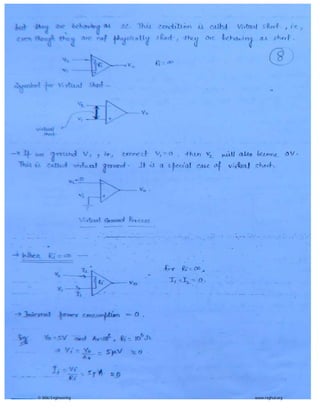 but they are behaving as SC. This condition is called Virtual Short, i.e,
even though they are not physically short, they are behaving as short.
8
V2
V1
Ri
Vo
Ri = ∞
Symbol for Virtual Short -
V2
V1
Vo
Virtual
short
→ If we ground V1, i.e, connect V1=0, then V2 will also become 0V.
This is called virtual ground. It is a special case of virtual short.
V2=0
V1
Vo
Virtual Ground
→ When Ri = ∞
V2
I2
V1
I1
Ri
Vo
For Ri = ∞,
I1 = I2 = 0.
→ Internal power consumption = 0.
Eg. Vo = 5V and Av=10⁶, Ri = 10⁶ Ω
⇒ Vi = Vo/Av = 5μV ≈ 0
I1 = Vi/Ri = ≈ 0